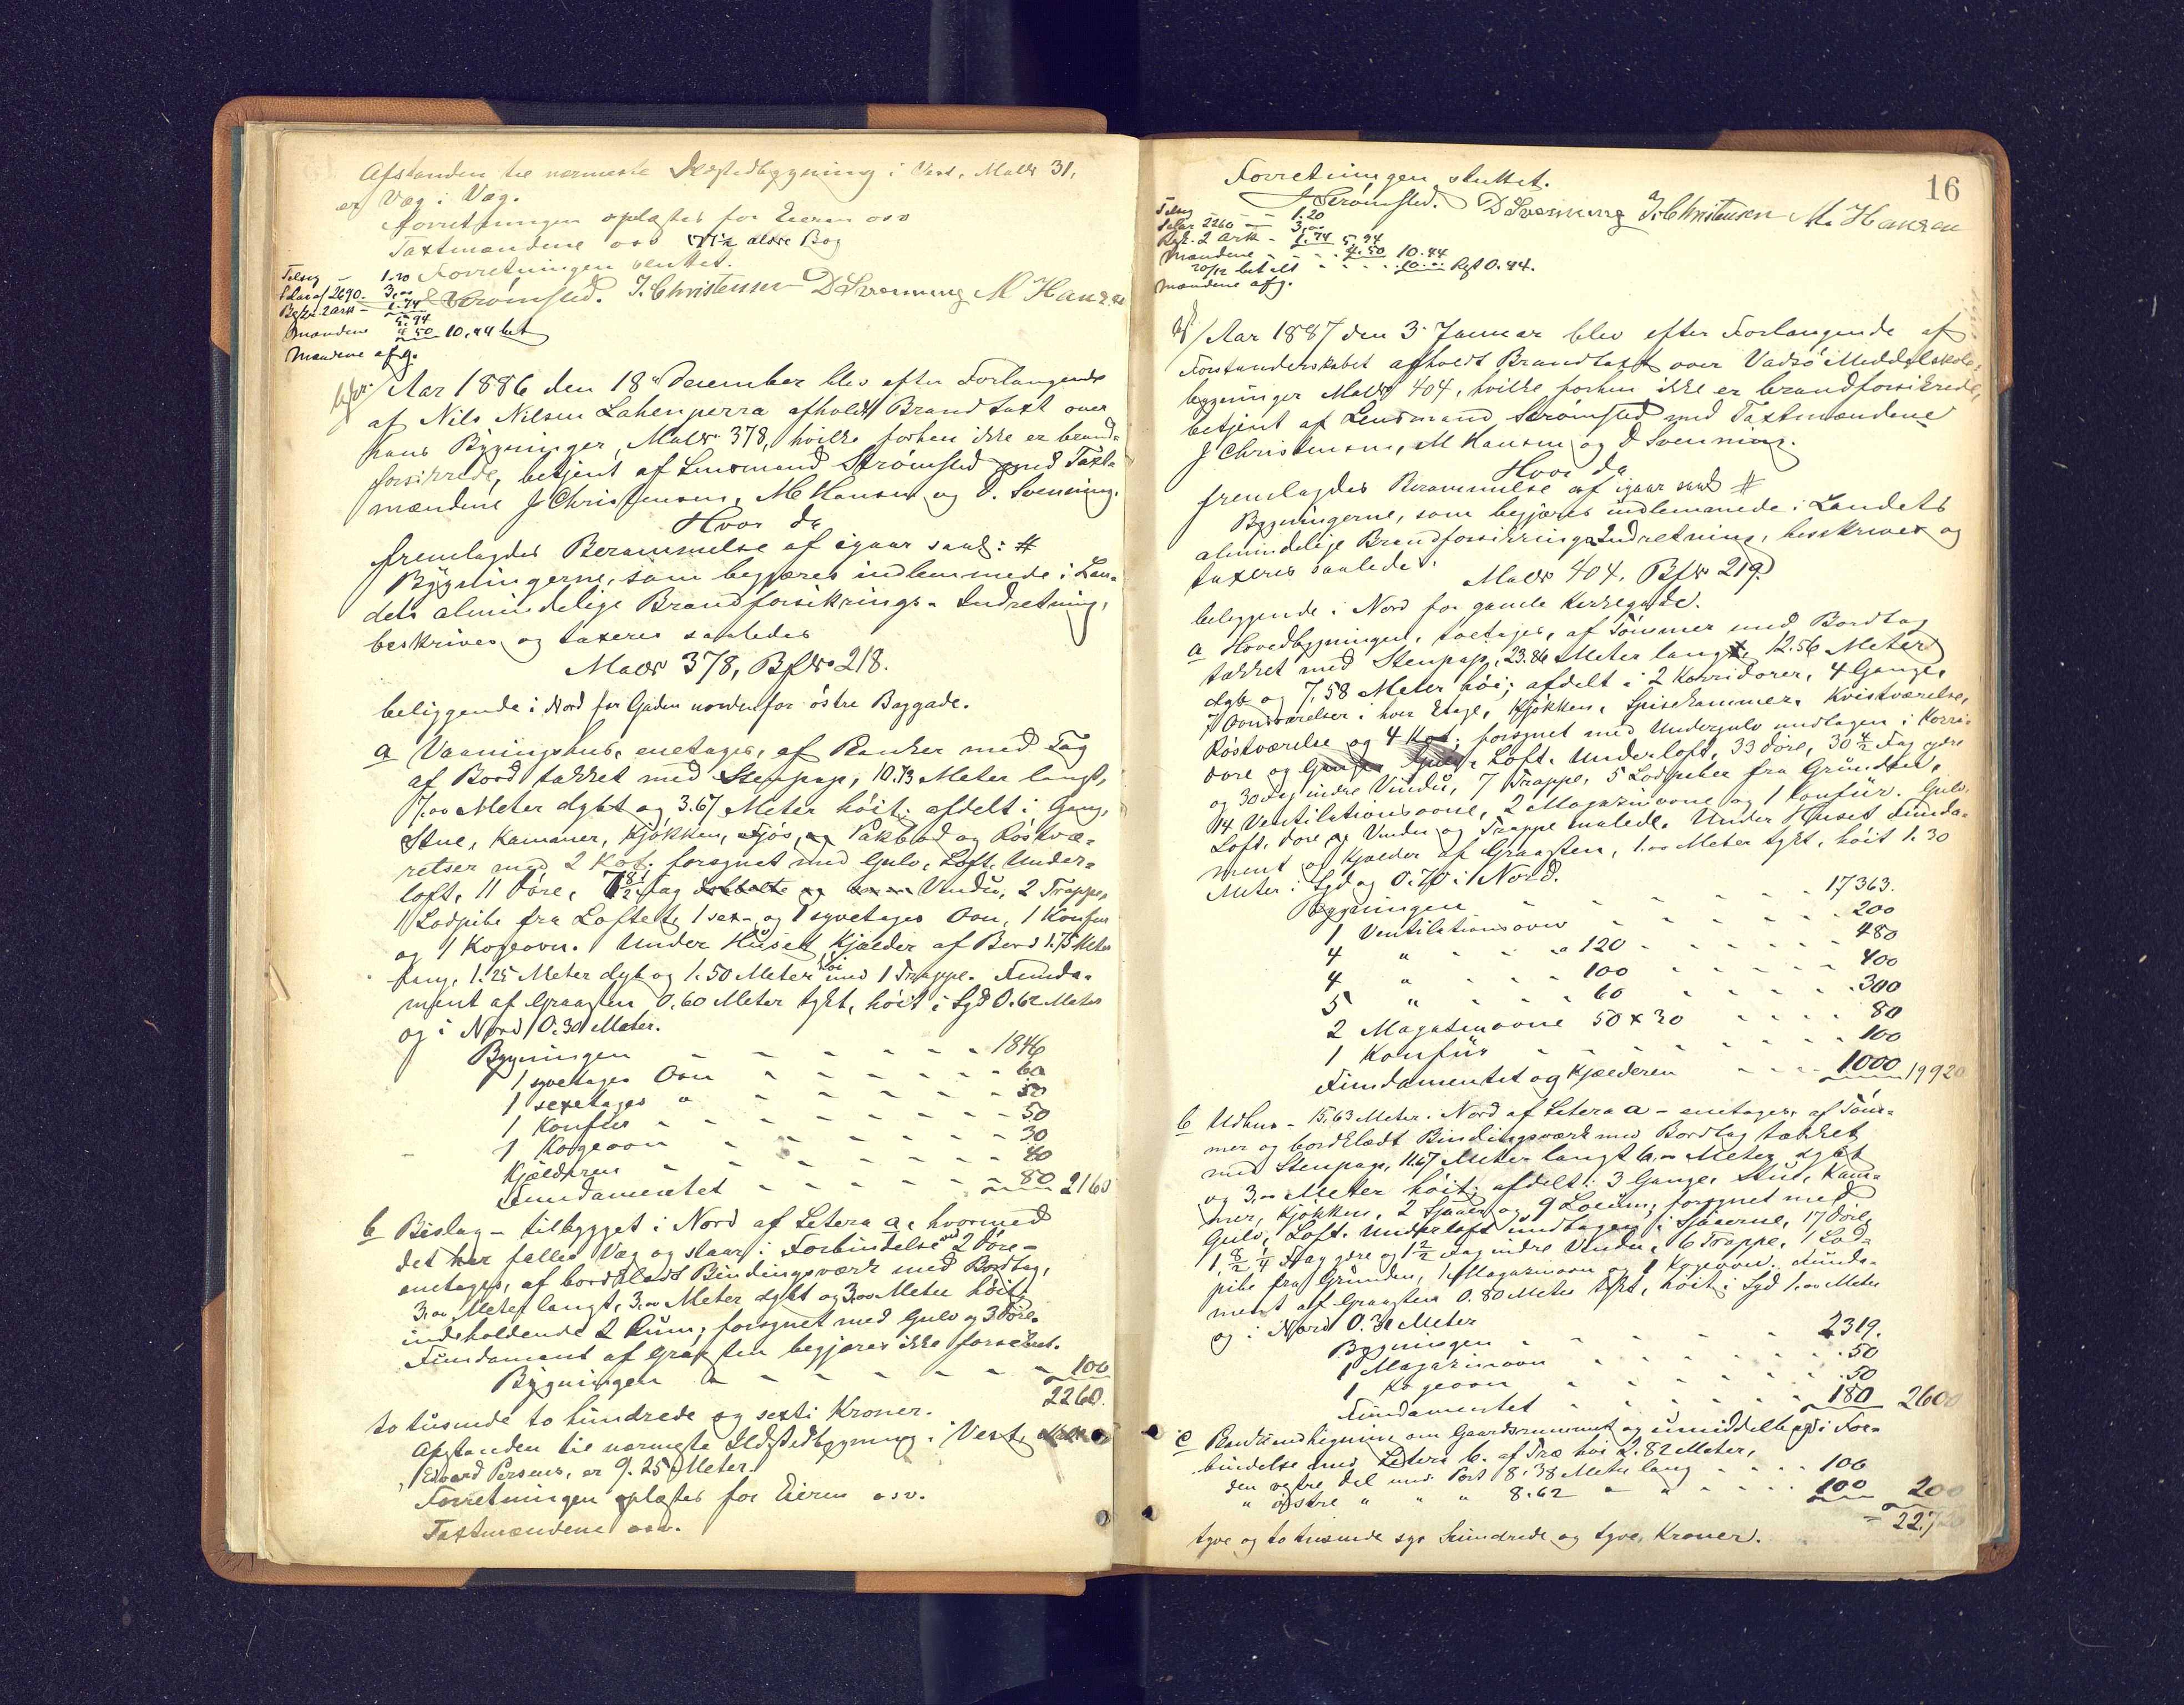 Afstanden til nærmeste Ildstedbygning i Vest, Malw 31,
er Væg i Væg.
Forretningen oplæstes for Eieren osv
Taxtmændene osv ældre Bog
Forretningen sluttet.
Strömsted. J. Christensen D Svenning M Hansen
Tilsig - 1.20
Salar af 2690 - 3,00
Regstr. 2 Ark - 1.74
5.94
Mændene 4.50 10,44 bet
Mændene afg.
Aar 1886 den 18 December blev efter Forlangende
af Nils Nilsen Lahenperra afholdt Brandtaxt over
hans Bygninger, Malw 378, hvilke forhen ikke er brand-
forsikrede, betjent af Lensmand Strömsted med Taxt-
mændene J Christensen, M Hansen og D. Svenning.
Hvor da
fremlagdes Berammelse af igaar saal: #
Bygningerne, som begjæres indlemmede i Lan-
dets almindelige Brandforsikrings-Indretning,
beskrives og taxeres saaledes
Malw 378, Bfw 218.
beliggende i Nord for Gaden nordenfor östre Baggade.
a Vaaningshus, enetages, af Planker med Tag
af Bord takket med Stenpap, 10.73 Meter langt,
7,00 Meter dybt og 3.67 Meter höit; afdelt i Gang,
Stue, Kammer, Kjökken, Fjös, og Pakbod og Röstvæ-
relser med 2 Kot; forsynet med Gulv, Loft, Under-
loft, 11 Döre, Fag Vindu, 2 Trapper,
1 Lodpibe fra Loftet, 1 sex- og 1 syvetages Ovn, 1 Konfur
og 1 Kogeovn. Under Huset Kjælder af Bord 1.75 Meter
lang, 1.25 Meter dyb og 1.50 Meter höi med 1 Trappe. Funda-
ment af Graasten 0.60 Meter tykt, höit i Syd 0.62 Meter
og i Nord 0.30 Meter.
Bygningen - - - - - - 1846
1 syvetages Ovn - - - - - 60
1 sexetages " - - - - - 50
1 Konfur - - - - - - 50
1 Kogeovn - - - - - - 30
Kjælderen - - - - - - 40
Fundamentet - - - - - - 80 2160
b Bislag - tilbygget i Nord af Letera a, hvormed
det har fælles Væg og staar i Forbindelse ved 2 Döre -
enetages, af bordklædt Bindingsværk med Bordtag,
3,00 Meter langt, 3,00 Meter dybt og 3,00 Meter höit,
indeholdende 2 Rum; forsynet med Gulv og 3 Döre.
Fundament af Graasten begjæres ikke forsikret.
Bygningen - - - - - - - 100
2260.
to tusinde to hundrede og sexti Kroner.
Afstanden til nærmeste Ildstedbygning i Vest,
Edvard Persens, er 9.25 Meter.
Forretningen oplæstes for Eieren osv.
Taxtmændene osv.
16
Forretningen sluttet.
Strömsted. D Svenning J. Christensen M. Hansen
Tilsig - - 1.20
Salar 2260 - 3,00
Regt. 2 Ark - 1.74 5.94
Mændene - - - 4.50 10.44
20/12 betalt - - - - 10.00 Rest 0.44.
Mændene afg.
Aar 1887 den 3 Januar blev efter Forlangende af
Forstanderskabet afholdt Brandtaxt over Vadsö Middelskole-
bygninger Malw 404, hvilke forhen ikke er brandforsikrede,
betjent af Lensmand Strömsted med Taxtmændene
J Christensen, M Hansen og D Svenning.
Hvor da
fremlagdes Berammelse af igaar saal #
Bygningerne, som begjæres indlemmede i Landets
almindelige Brandforsikrings Indretning, beskrives og
taxeres saaledes:
Malw 404, Bfw 219.
beliggende i Nord for gamle Kirkegade.
a Hovedbygningen, toetages, af Tömmer med Bordtag
takket med Stenpap, 23.86 Meter lang, 12.56 Meter
dyb og 7,58 Meter höi; afdelt i 2 Korridorer, 4 Gange,
7 Ovnsværelser i hver Etage, Kjökken, Spisekammer, Kvistværelse,
Röstværelse og 4 Kot; forsynet med Undergulv undtagen i Korri-
dore og Gange, Loft, Underloft, 33 Döre, 30 4/2 Fag ydre
og 30 Fag indre Vindu, 7 Trapper, 5 Lodpiber fra Grunden,
14 Ventilationsovne, 2 Magazinovne og 1 Konfur. Gulv,
Loft, Döre og Vindu og Trappe malede. Under Huset Funda-
ment og Kjælder af Graasten, 1.00 Meter tykt, höit 1.30
Meter i Syd og 0.70 i Nord.
Bygningen - - - - - - 17363.
1 Ventilationsovn - - - - - 200
4 " - - à 120 - - - - - 480
4 " - - - 100 - - - - 400
5 " - - - 60 - - - - 300
2 Magazinovne 50 + 30 - - - - 80
1 Konfur - - - - - - - 100
Fundamentet og Kjælderen - - - - 1000 19920
b Udhus - 15,63 Meter Nord af Letera a - enetages, af Töm-
mer og bordklædt Bindingsværk med Bordtag takket
med Stenpap, 11.67 Meter langt, 6,00 Meter dybt
og 3,00 Meter höit; afdelt i 3 Gange, Stue, Kam-
mer, Kjökken, 2 Sjaaer og 9 Locum; forsynet med
Gulv, Loft, Underloft undtagen i Sjaaerne, 17 Döre,
Fag ydre og 1 2/2 Fag indre Vindu, 6 Trapper, 1 Lod-
pibe fra Grunden, 1 Magazinovn og 1 Kogeovn. Funda-
ment af Graasten 0.80 Meter tykt, höit i Syd 1.00 Meter
og i Nord 0.30 Meter
Bygningen - - - - - - 2319.
1 Magazinovn - - - - - - 50
1 Kogeovn - - - - - - 50
Fundamentet - - - - - - 180 2600
c Bordindhegning om Gaardsrummet og umiddelbart i For-
bindelse med Letera b. af Træ höi 2.82 Meter,
den vestre Del med Port 8.38 Meter lang - - - - 100
" östre " " " 8.62 " - - - - 100 200
- 22720
tyve og to tusinde syv hundrede og tyve Kroner.